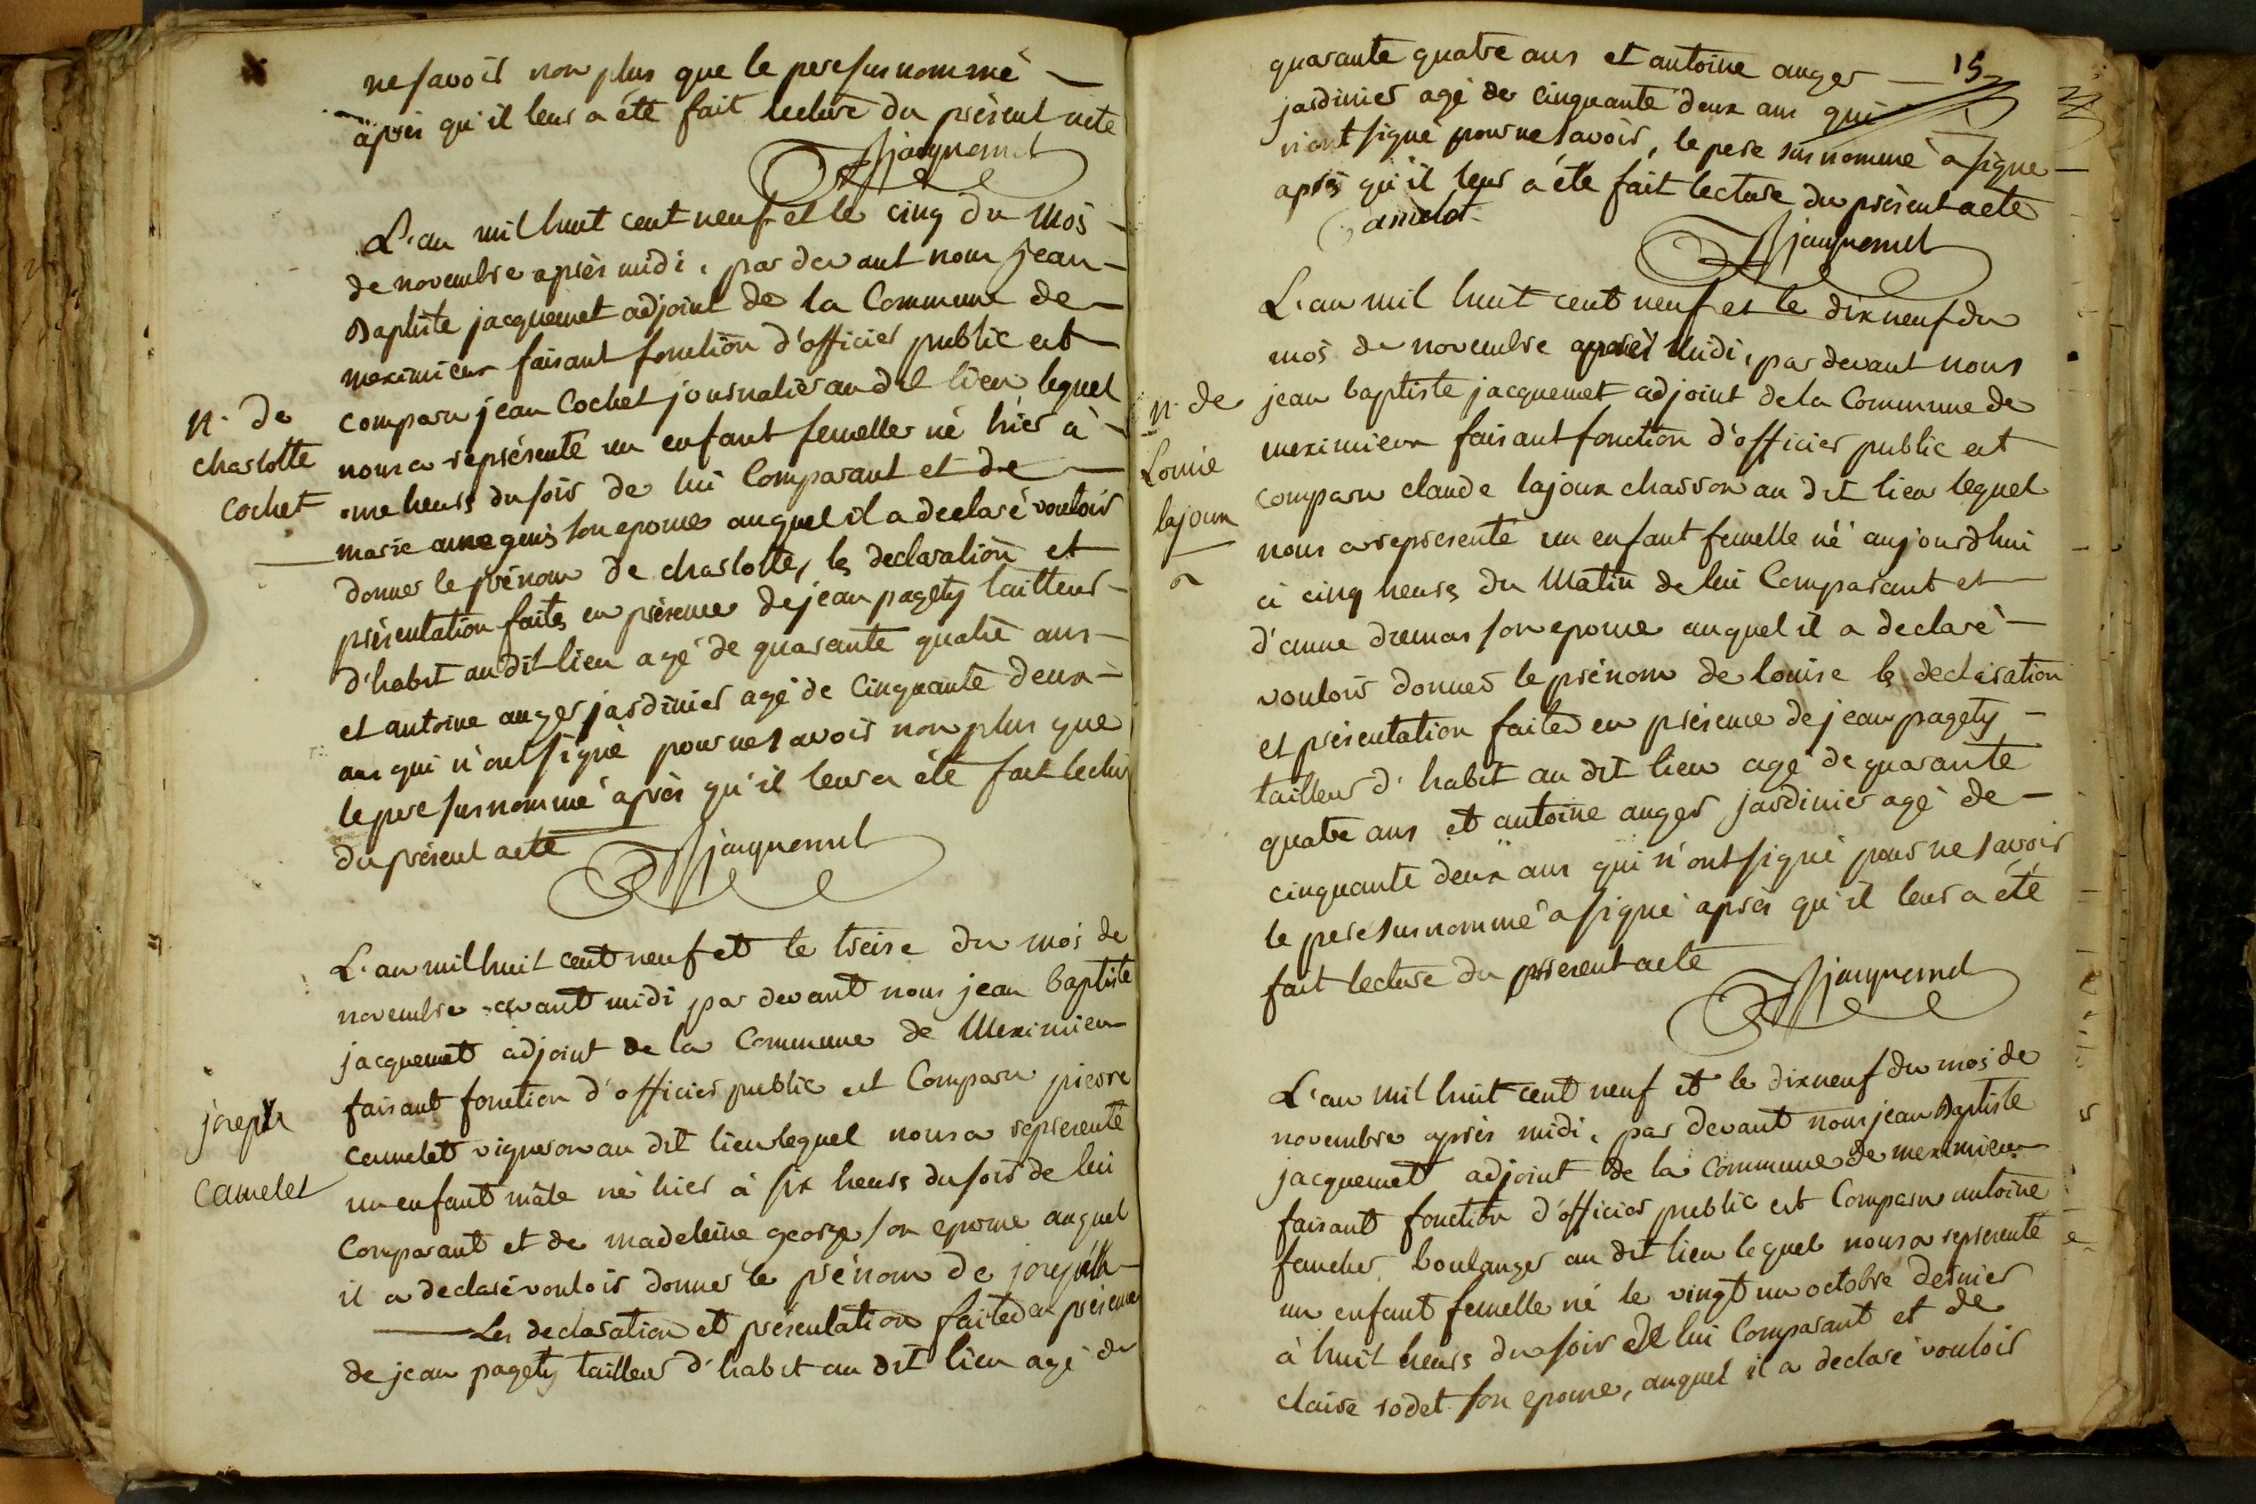 ne savoir non plus que le pere surnommé
après qu'il leur a été fait lecture du présent acte
jacquemet
L'an mil huit cent neuf et le cinq du mois
de novembre après midi, par devant nous jean
Baptiste jacquemet adjoint de la Commune de
meximieux faisant fonction d'officier public est
comparu jean Cochet journalier au dit lieu lequel
N. de
charlotte
Cochet
nous a représenté un enfant femelle né hier à
une heure du soir de lui Comparant et de
marie son epouse auquel il a declaré vouloir
donner le prénom de charlotte, les declaration et
présentation faites en présence de jean pagety tailleur
d'habit au dit lieu agé de quarante quatre ans
et antoine anger jardinier agé de Cinquante deux
ans qui n'ont signé pour ne savoir non plus que
le pere surnommé après qu'il leur a été fait lectur
du présent acte
jacquemet
L'an mil huit cent neuf et le treise du mois de
novembre avant midi par devant nous jean baptiste
jacquemet adjoint de la Commune de Meximieux
faisant fonction d'officier public est Comparu pierre
joseph
Camelet
camelet vigneron au dit lieu lequel nous a représenté
un enfant mâle né hier à six heures du soir de lui
Comparant et de madeleine george son epouse auquel
il a declaré vouloir donner le prénom de joseph
Les declaration et présentation faites en présence
de jean pagety tailleur d'habit au dit lieu agé de
15
quarante quatre ans et antoine anger
jardinier agé de cinquante deux ans qui
n'ont signé pour ne savoir, le pere surnommé a signé
après qu'il leur a été fait lecture du présent acte
Camelot
jacquemet
L'an mil huit cent neuf et le dix neuf du
mois de novembre après Midi, par devant nous
N. de
Louise
lajoux
jean baptiste jacquemet adjoint de la Commune de
meximieux faisant fonction d'officier public est
comparu claude lajoux charron au dit lieu lequel
nous a représenté un enfant femelle né aujourdhui
à cinq heures du Matin de lui Comparant et
d'anne dremas son epouse auquel il a declaré
vouloir donner le prénom de louise les declaration
et présentation faites en présence de jean pagety
tailleur d'habit au dit lieu agé de quarante
quatre ans et antoine anger jardinier agé de
cinquante deux ans qui n'ont signé pour ne savoir
le pere surnommé a signé après qu'il leur a été
fait lecture du présent acte
jacquemet
L'an mil huit cent neuf et le dix neuf du mois de
novembre après midi, par devant nous jean Baptiste
jacquemet adjoint de la commune de meximieux
faisant fonction d'officier public est Comparu antoine
faucher boulanger au dit lieu lequel nous a représenté
un enfant femelle né le vingt un octobre dernier
à huit heures du soir de lui Comparant et de
claire rodet son epouse, auquel il a declaré vouloir